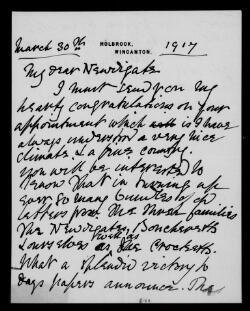 HOLBROOK,
WINCANTON.
March 30th 1917
My dear Newdigate
I must send you my
hearty congratulations on your
appointment which is I have
always understood a very nice
climate & a fine country.
You will be interested to
know that in turning up
ever so many bundles of old
letters from the three families
The Newdigates, Boucheretts
& ourselves as well as the Crockerts.
What a splendid victory to
days papers announce. The